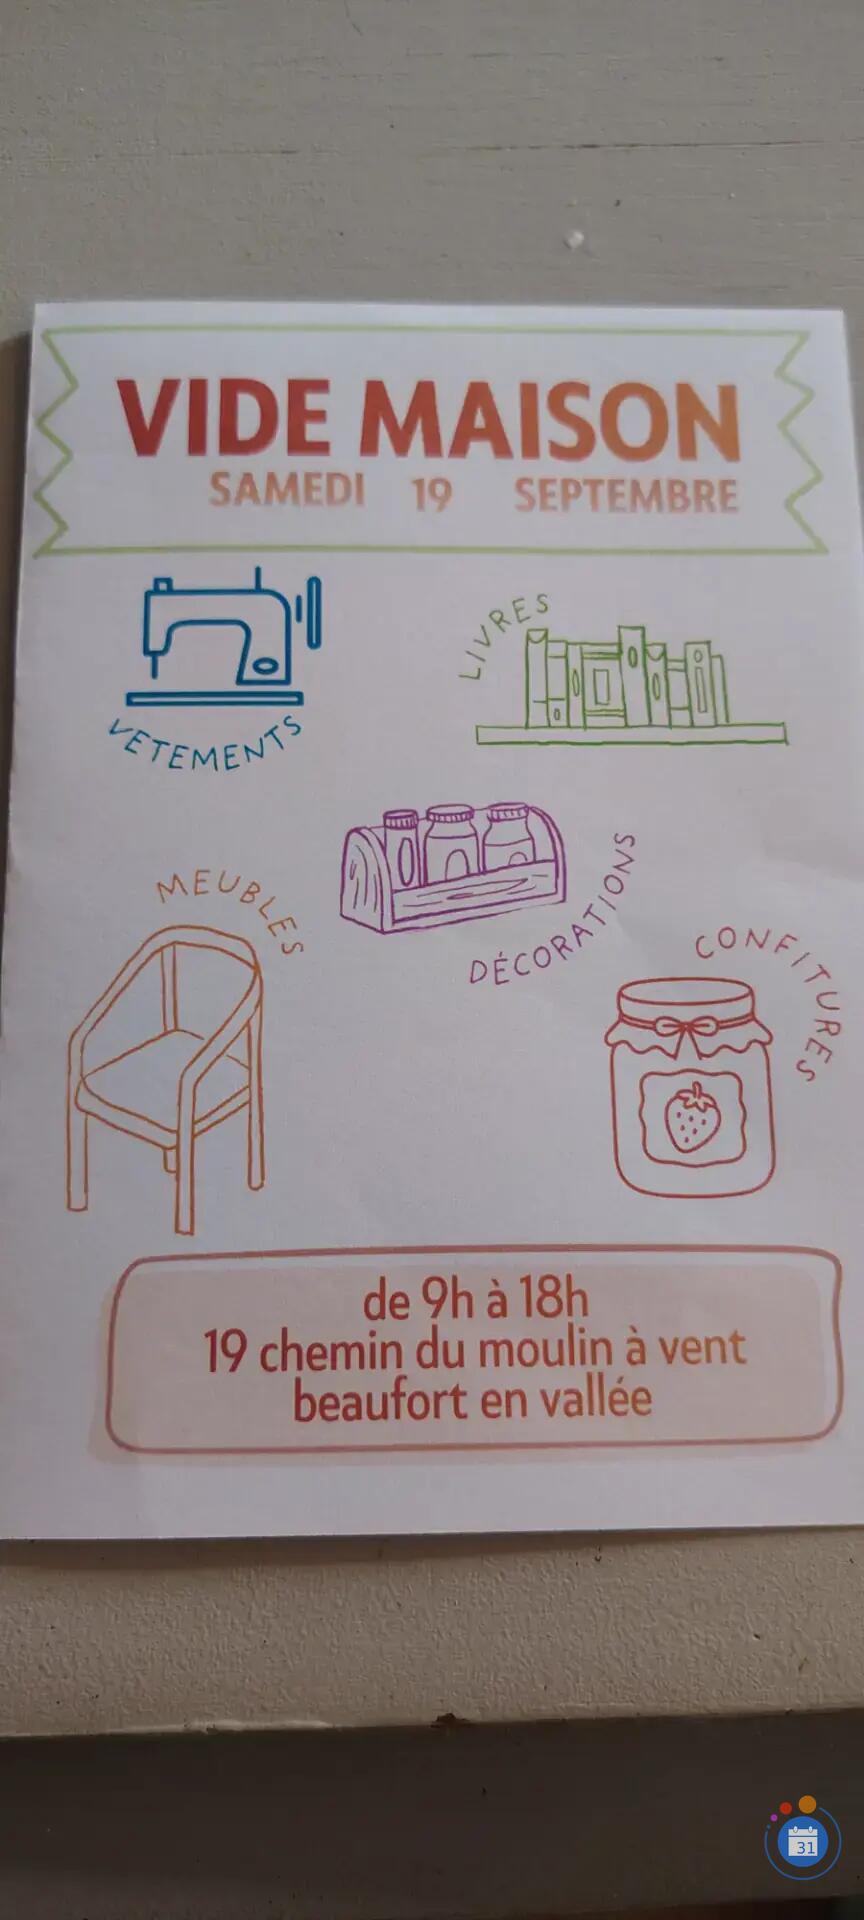 VIDE MAISON
SAMEDI 19 SEPTEMBRE
VETEMENTS
LIVRES
DÉCORATIONS
MEUBLES
CONFITURES
de 9h à 18h
19 chemin du moulin à vent
beaufort en vallée
31